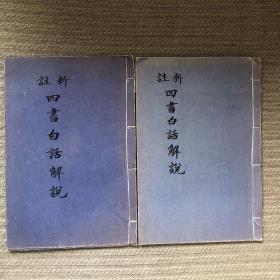 新註
四書白話解說
新註
四書白話解說